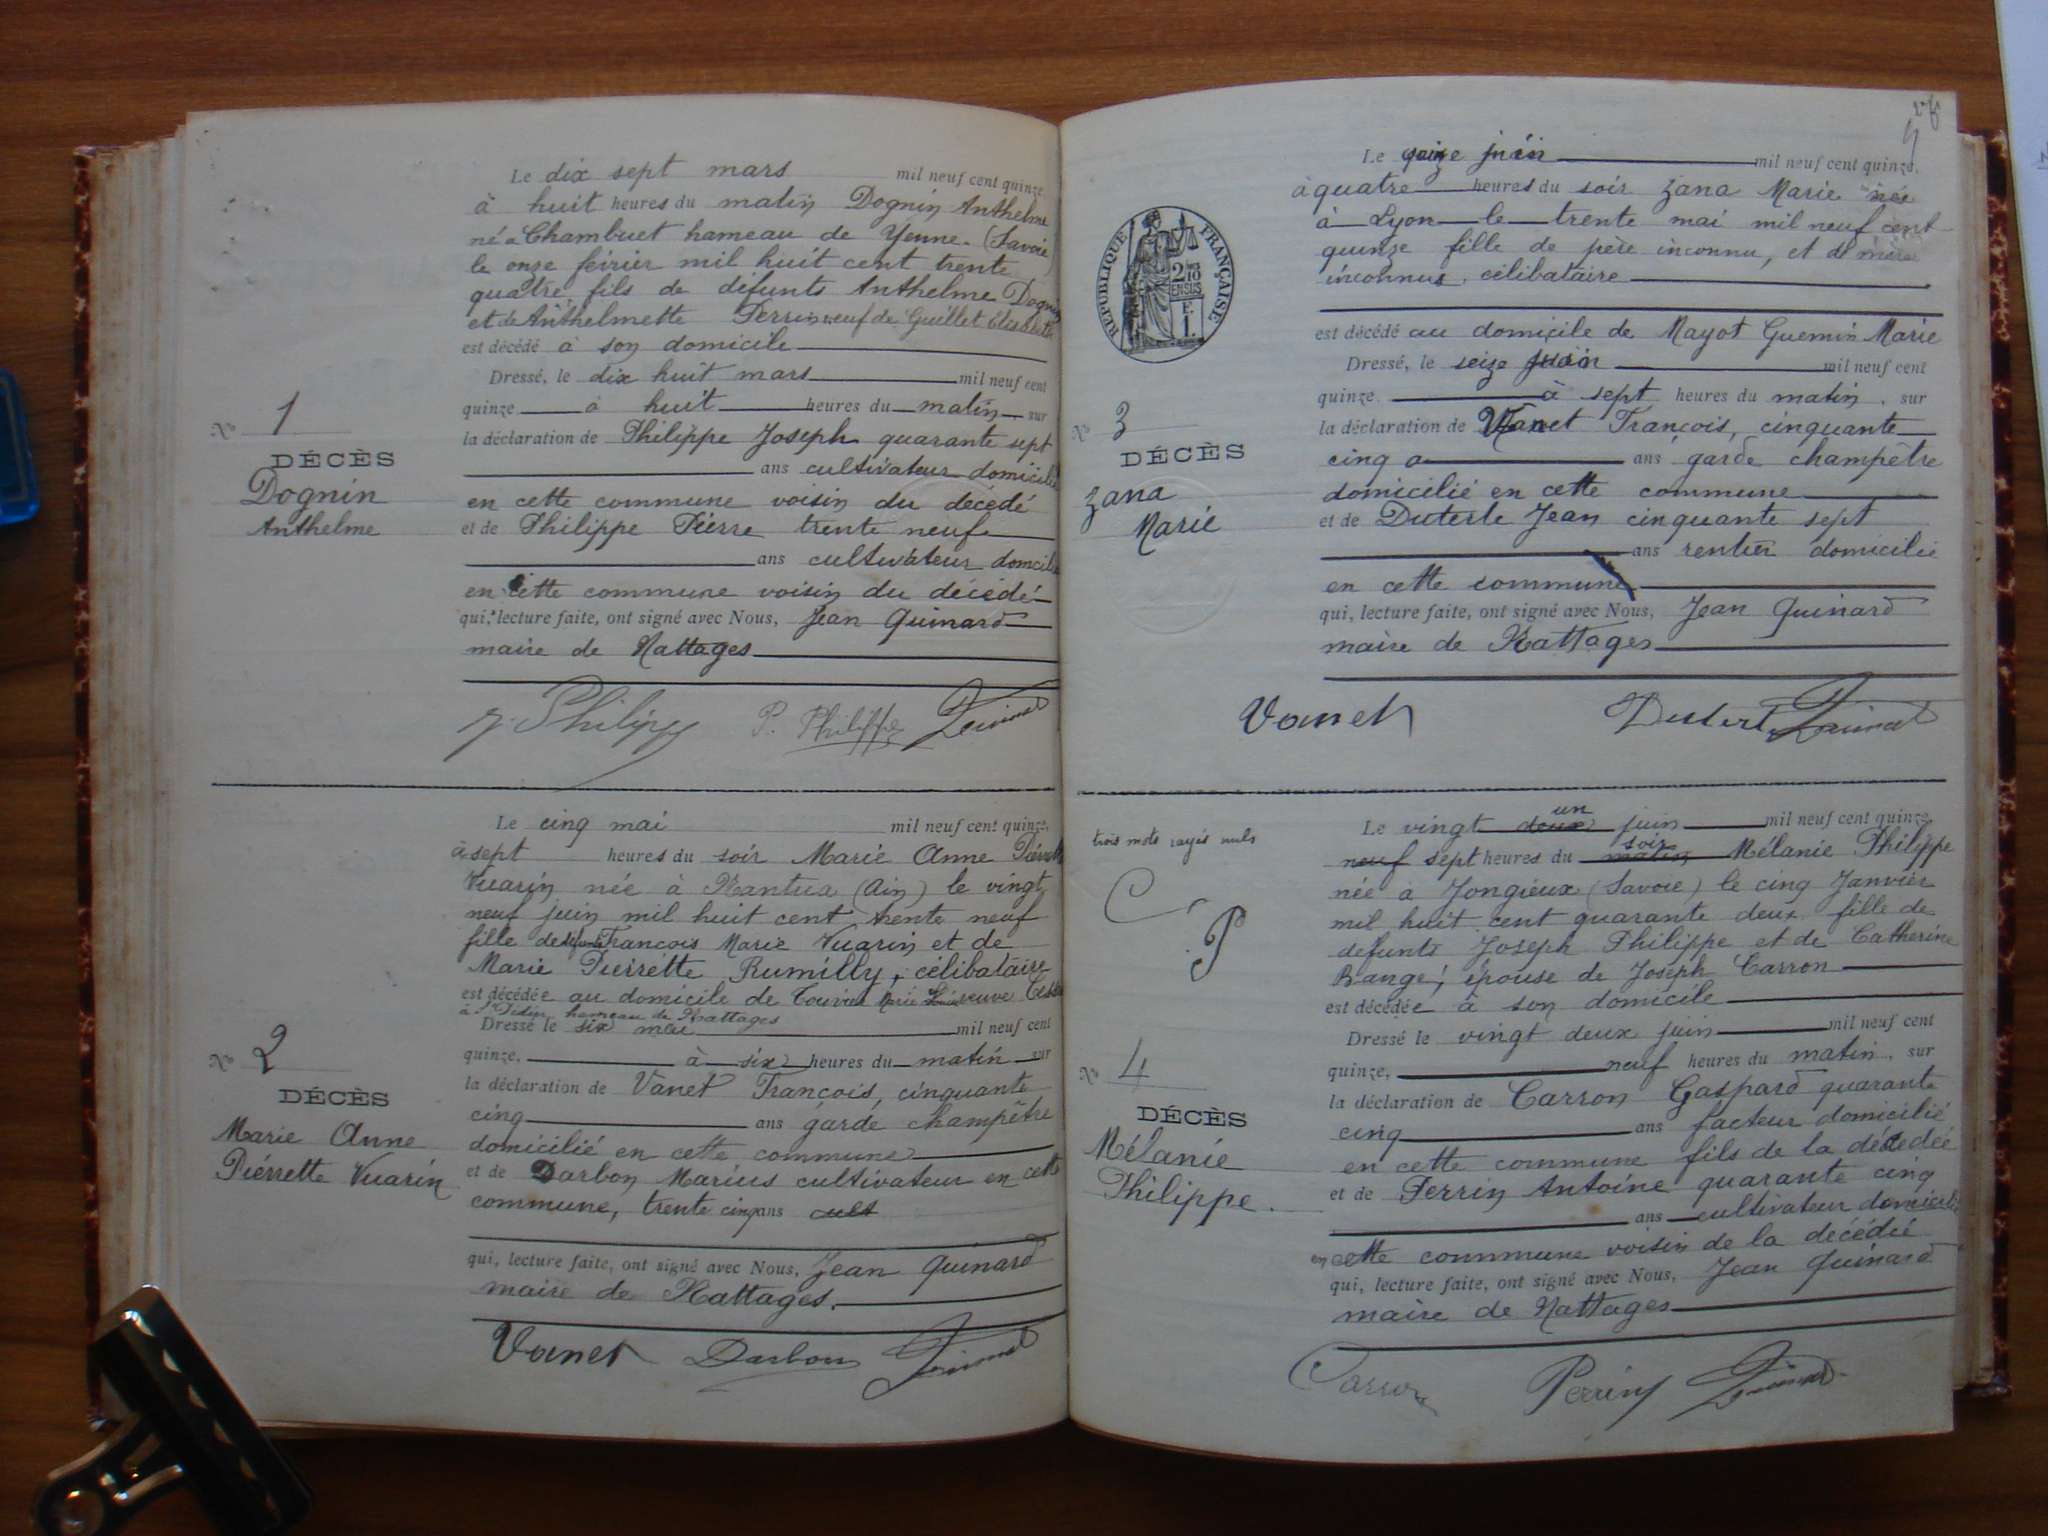 Le dix sept mars mil neuf cent quinze,
à huit heures du matin Dognin Anthelme
né à Chambuet hameau de Yenne. (Savoie)
le onze février mil huit cent trente
quatre, fils de défunts Anthelme Dognin
et de Anthelmette Perrin, veuf de Guillet Elisabeth
est décédé à son domicile
Dressé, le dix huit mars mil neuf cent
quinze à huit heures du matin, sur
la déclaration de Philippe Joseph quarante sept
ans cultivateur domicilié
en cette commune voisin du décédé
et de Philippe Pierre trente neuf
ans cultivateur domicilié
en cette commune voisin du décédé
qui, lecture faite, ont signé avec Nous, Jean Guinard
maire de Nattages
No 1
DÉCÈS
Dognin
Anthelme
J. Philippe P. Philippe Guinard
Le cinq mai mil neuf cent quinze,
à sept heures du soir Marie Anne Pierrette
Vuarin née à Nantua (Ain) le vingt
neuf juin mil huit cent trente neuf
fille de défunts François Marie Vuarin et de
Marie Pierrette Rumilly, célibataire
est décédée au domicile de Marie veuve
à hameau de Nattages
Dressé le six mai mil neuf cent
quinze, à six heures du matin sur
la déclaration de Vanet François, cinquante
cinq ans garde champêtre
domicilié en cette commune
et de Darbon Marius cultivateur en cette
commune, trente cinq ans cult
qui, lecture faite, ont signé avec Nous, Jean Guinard
maire de Nattages.
No 2
DÉCÈS
Marie Anne
Piérrette Vuarin
Vanet Darbon Guinard
Le seize juin mil neuf cent quinze,
à quatre heures du soir Zana Marie née
à Lyon le trente mai mil neuf cent
quinze fille de père inconnu, et de mère
inconnue, célibataire
est décédé au domicile de Mayot Guemin Marie
Dressé, le seize juin mil neuf cent
quinze à sept heures du matin, sur
la déclaration de Vanet François, cinquante
cinq a ans garde champêtre
domicilié en cette commune
et de Duterte Jean cinquante sept
ans rentier domicilié
en cette commune
qui, lecture faite, ont signé avec Nous, Jean Guinard
maire de Nattages
RÉPUBLIQUE FRANÇAISE
2/10
EN SUS
E.
1.
No 3
DÉCÈS
Zana
Marie
Vanet Dutert Guinard
un
Le vingt deux juin mil neuf cent quinze,
soir
neuf sept heures du matin Mélanie Philippe
née à Jongieux (Savoie) le cinq Janvier
mil huit cent quarante deux fille de
défunts Joseph Philippe et de Catherine
Range, épouse de Joseph Carron
est décédée à son domicile
Dressé le vingt deux juin mil neuf cent
quinze, neuf heures du matin, sur
la déclaration de Carron Gaspard quarante
cinq ans facteur domicilié
en cette commune fils de la décédée
et de Perrin Antoine quarante cinq
ans cultivateur domicilié
en cette commune voisin de la décédée
qui, lecture faite, ont signé avec Nous, Jean Guinard
maire de Nattages
trois mots rayés nuls
C P
No 4
DÉCÈS
Mélanie
Philippe.
Carron Perrin Guinard